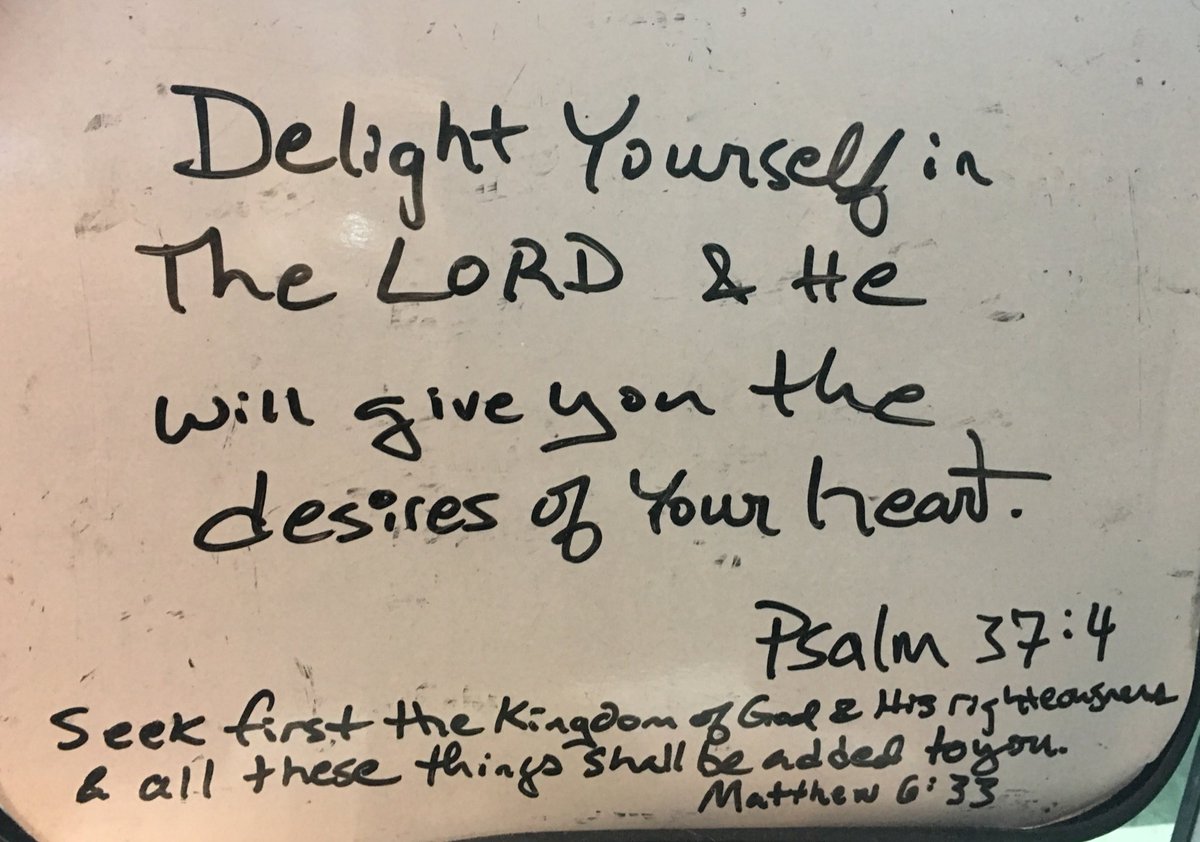 Delight Yourself in
The LORD & He
will give you the
desires of Your heart.
Psalm 37:4
Seek first the Kingdom of God & His righteousness
& all these things shall be added to you.
Matthew 6:33